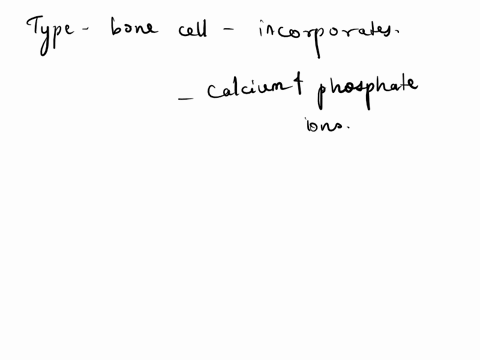 Type - bone cell - incorporates.
- Calcium & phosphate
ions.